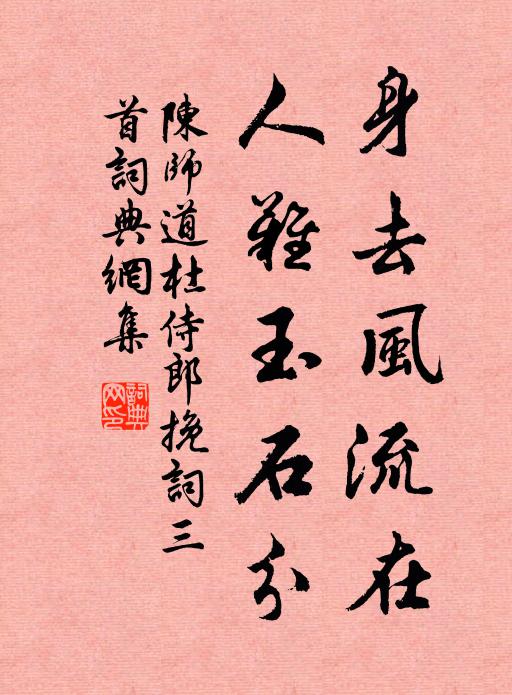 身去風流在
人難玉石分
陳師道杜侍郎挽詞三
首詞典網集
詞典
网印